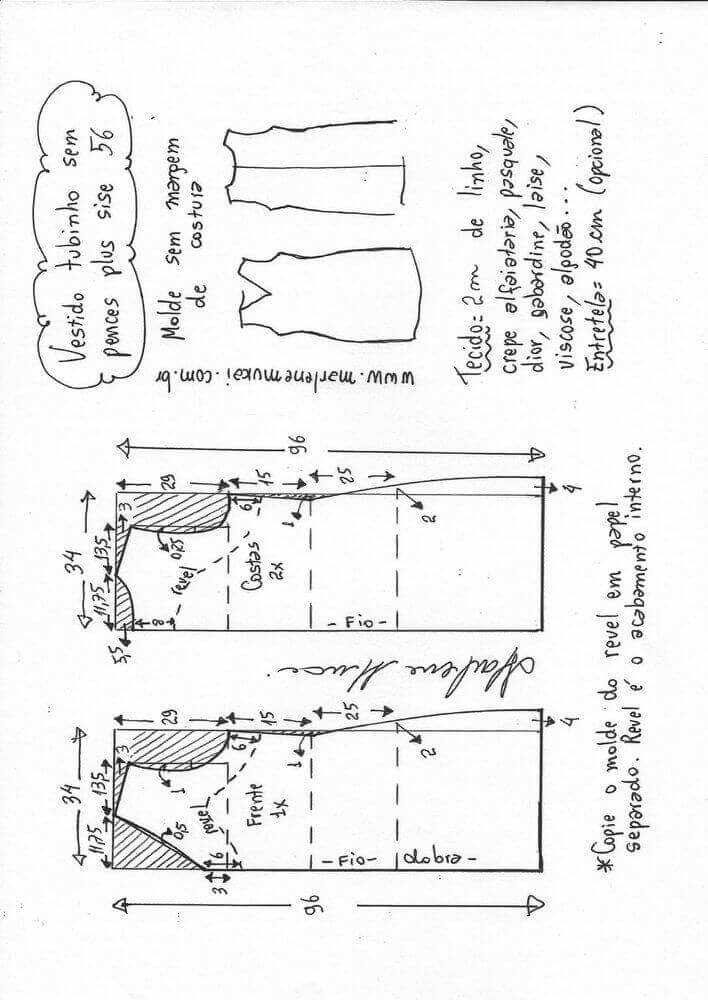 Vestido tubinho sem
pences plus sise 56
Molde sem margem
de costura
www.marlenemukai.com.br
Tecido= 2 m de linho,
crepe alfaiataria, pasquale,
dior, gabardine, laise,
viscose, algodão...
Entretela= 40 cm (opcional)
34
11,75
13,5
3
29
15
25
96
5,5
8
0,25
revel
6
Costas
2x
1
2
- Fio -
4
Marlene Mukai
34
11,75
13,5
3
29
15
25
96
0,5
1
revel
6
6
3
Frente
1x
1
2
- Fio -
dobra -
4
*Copie o molde do revel em papel
separado. Revel é o acabamento interno.